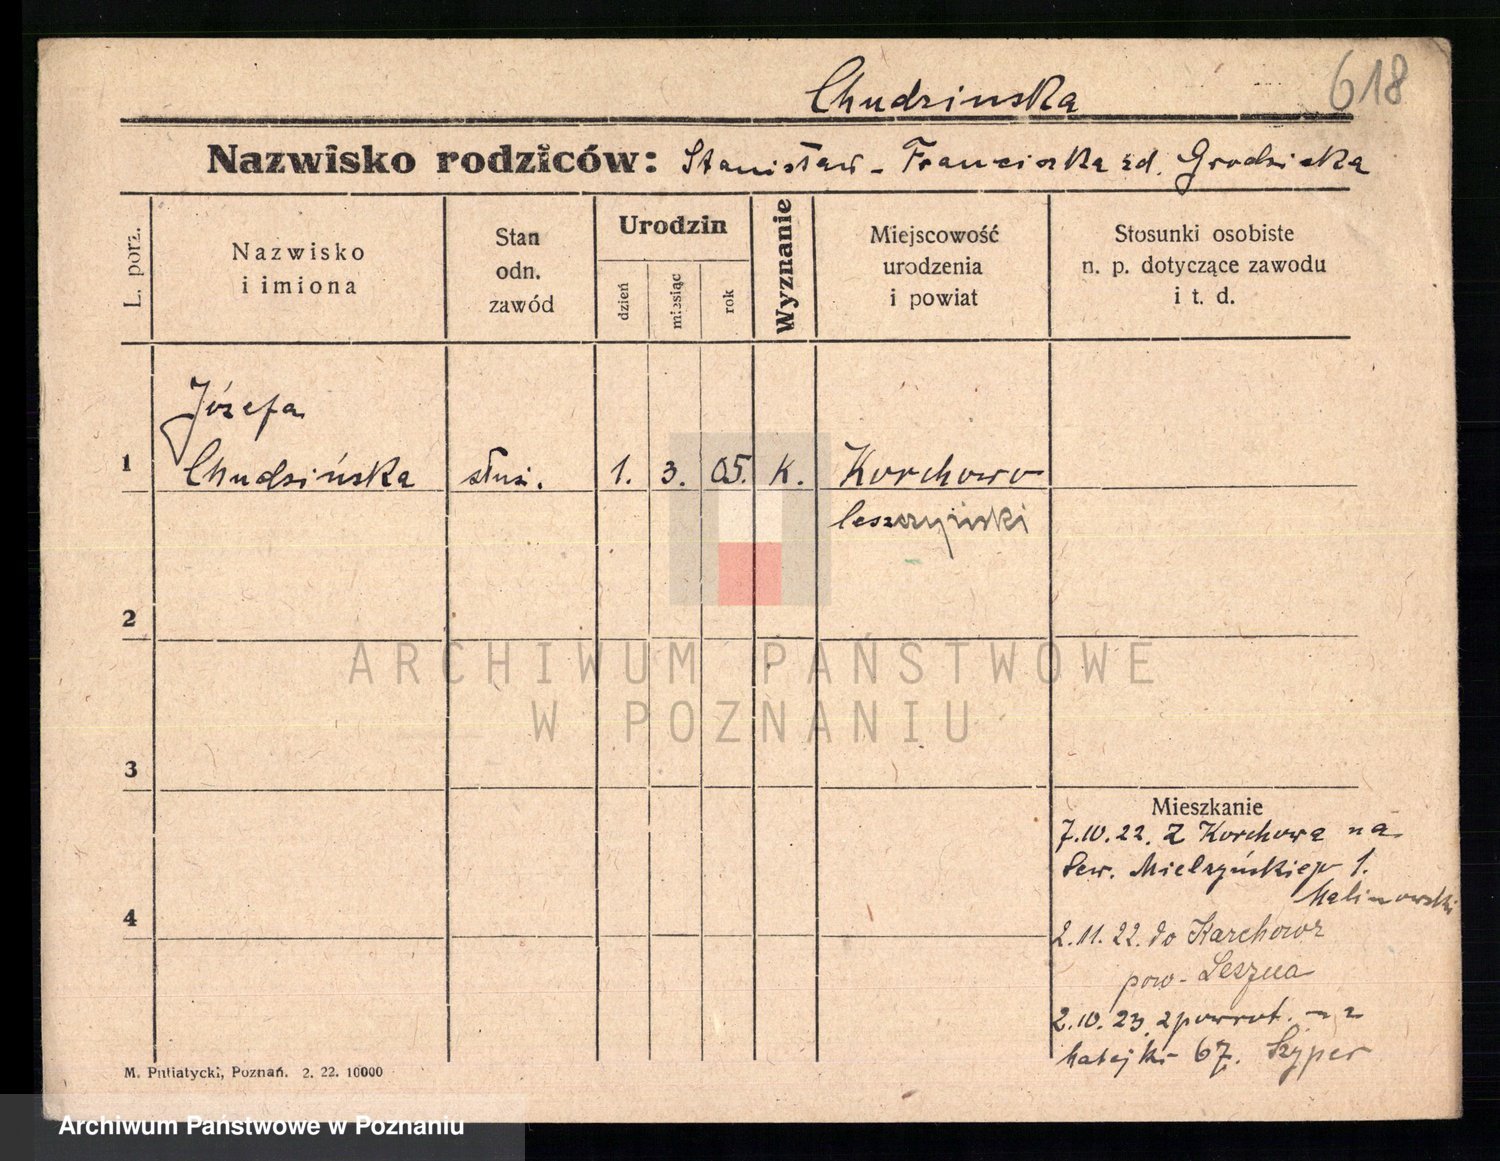 618
Chudzinska
Nazwisko rodziców: Stanisław - Franciszka zd. Grodzicka
L. porz.
Nazwisko
i imiona
Stan
odn.
zawód
Urodzin
dzień
miesiąc
rok
Wyznanie
Miejscowość
urodzenia
i powiat
Stosunki osobiste
n. p. dotyczące zawodu
i t. d.
Józefa
1 Chudzińska służ. 1. 3. 05. K. Korchowo
leszczyński
2
ARCHIWUM PAŃSTWOWE
W POZNANIU
3
Mieszkanie
7.10.22. Z Korchowa na
Sew. Mielżyńskiego 1.
Malinowski
4
2.11.22. do Karchowa
pow. Leszna
2.10.23. zpowrot. na
Matejki 67. Szyper
M. Putiatycki, Poznań. 2. 22. 10000
Archiwum Państwowe w Poznaniu